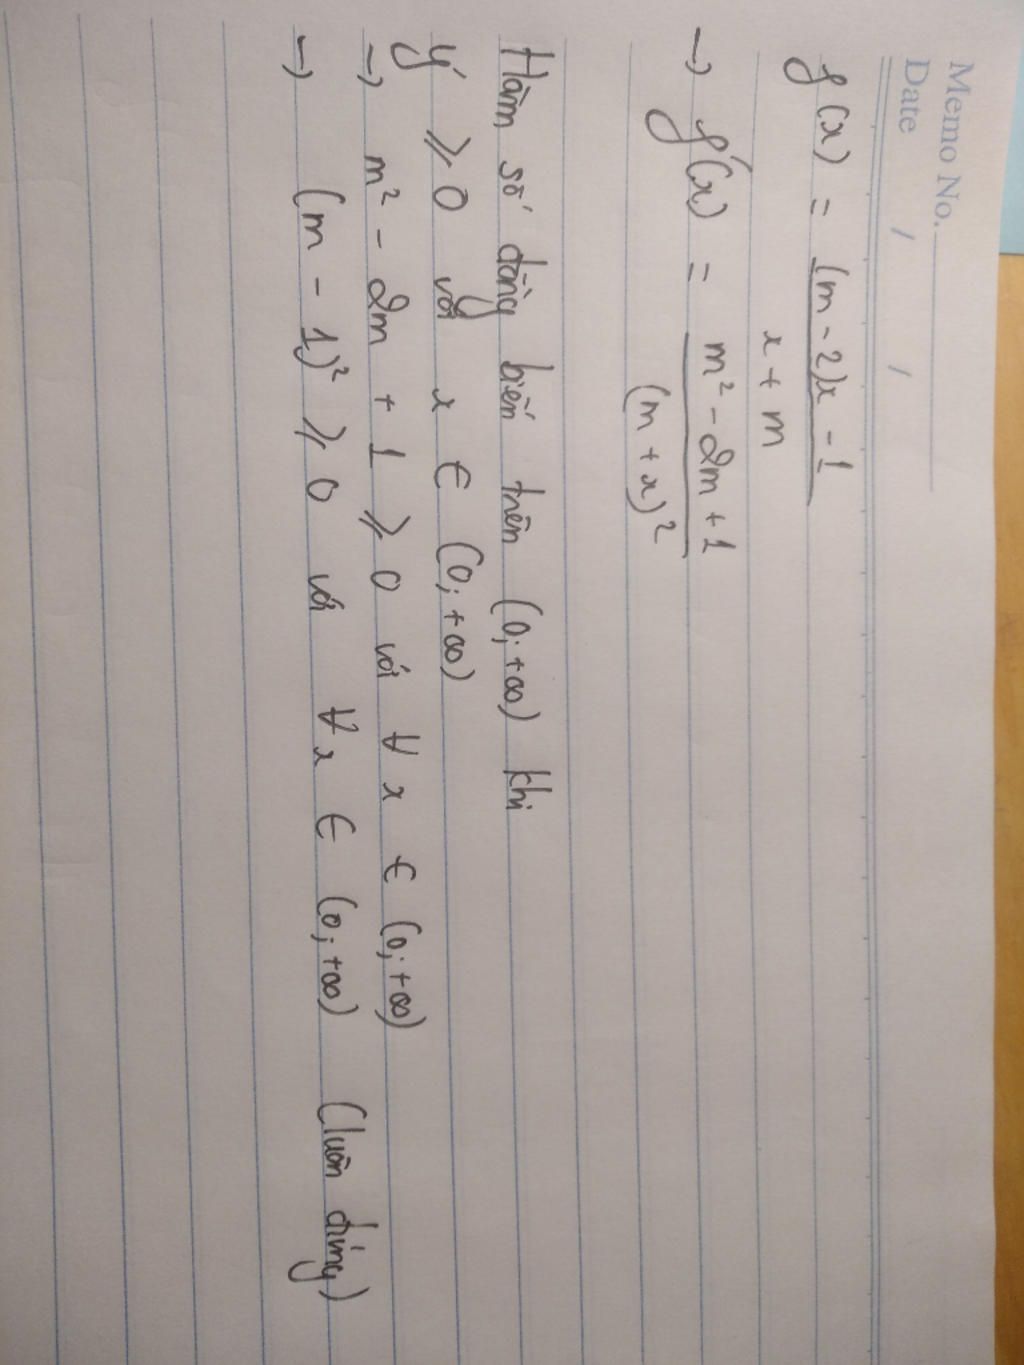 Memo No.
Date / /
f(x) = (m - 2)x - 1
x + m
→ f'(x) = m² - 2m + 1
(m + x)²
Hàm số đồng biến trên (0; +∞) khi
y' ⩾ 0 với x ∈ (0; +∞)
→ m² - 2m + 1 ⩾ 0 với ∀ x ∈ (0; +∞)
→ (m - 1)² ⩾ 0 với ∀x ∈ (0; +∞) (luôn đúng)